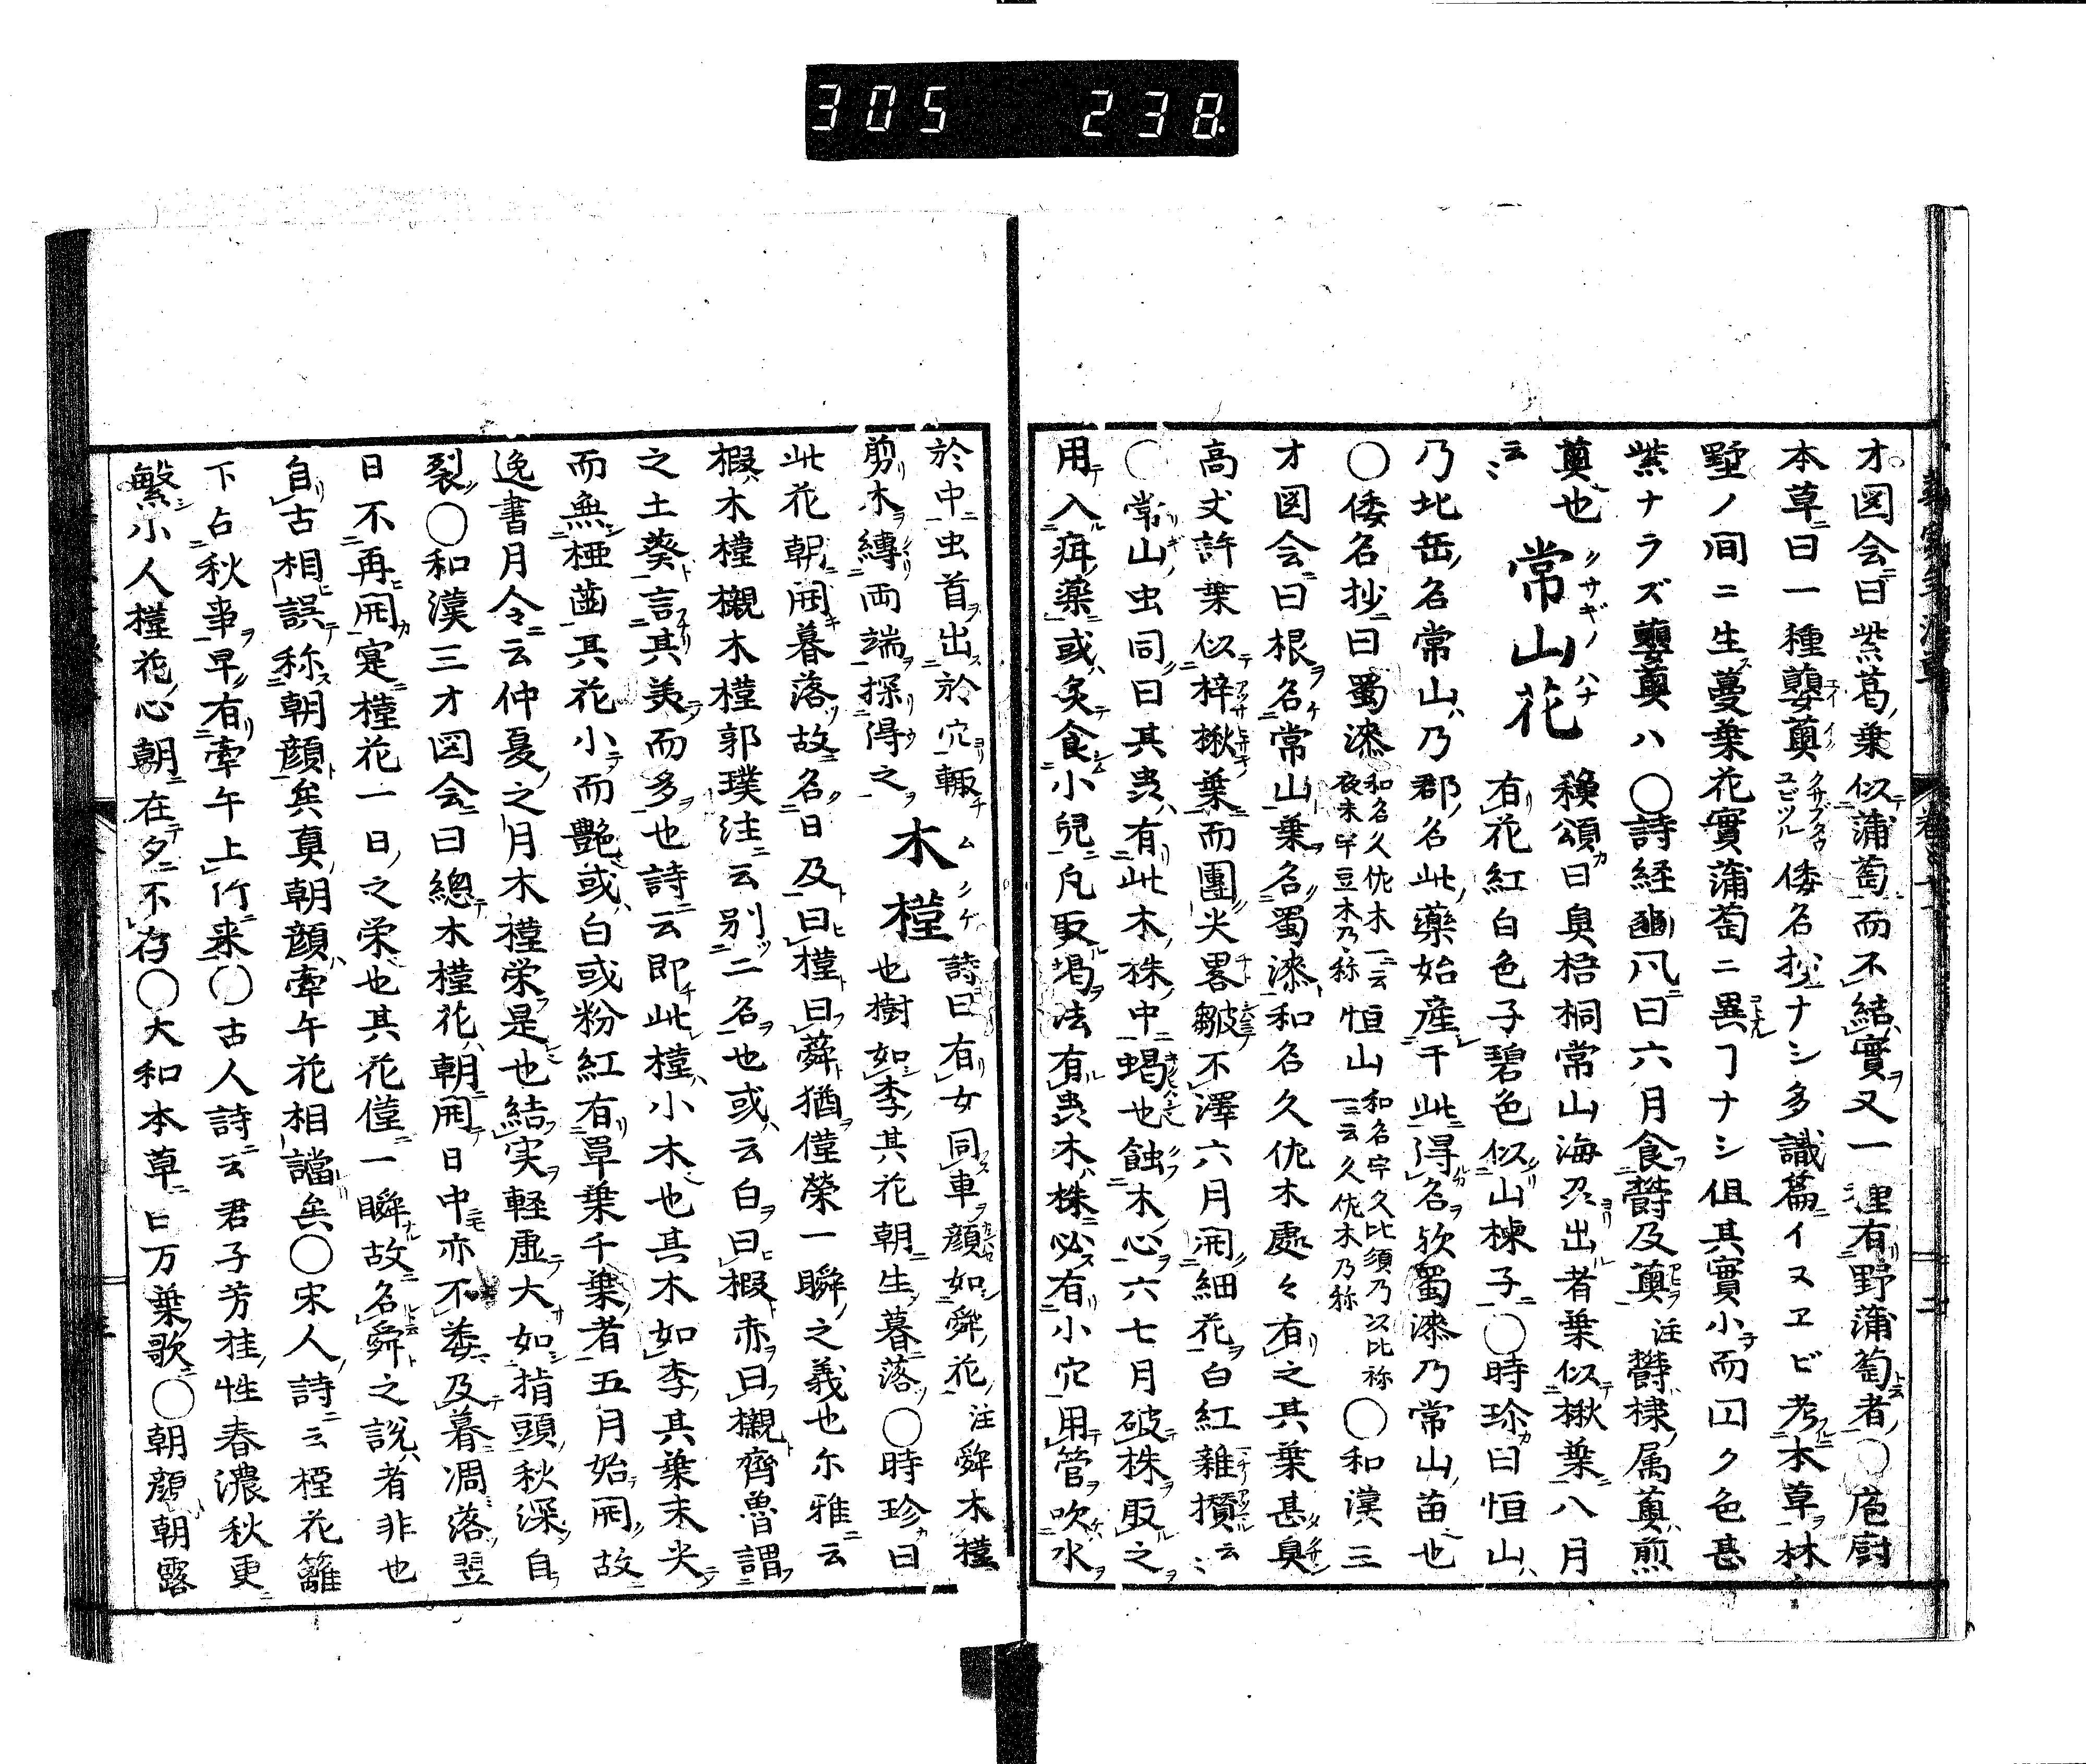 305 238
才図会曰紫葛葉似蒲萄而不結實又一種有野蒲萄者〇庖厨
本草曰一種蘡薁倭名抄ナシ多識篇イヌヱビ考本草林
墅ノ间ニ生蔓葉花實蒲萄ニ異ヿナシ但其實小而囗ク色甚
紫ナラズ蘡薁ハ〇詩経豳凨曰六月食欝及薁注欝棣属薁煎
薁也 常山花 クサギノハナ 穐頌曰臭梧桐常山海忍出者葉似楸葉八月
云〻 有花紅白色子碧色似山楝子〇時珍曰恒山
乃北岳名常山乃郡名此藥始産于此得名欤蜀漆乃常山苗也
〇倭名抄曰蜀漆和名久佐木一云夜末宇豆木乃祢恒山和名宇久比須乃以比祢一云久佐木乃祢〇和漢三
才図会曰根名常山葉名蜀漆和名久佐木處々有之其葉甚臭
高丈許葉似梓楸葉而團尖畧皺不澤六月開細花白紅雜攅云〻
〇常山虫同曰其蟲有此木株中蝎也蝕木心六七月破株取之
用入疳藥或炙食小児凡取蝎法有蟲木株必有小穴用管吹水
於中虫首出於穴輙
剪木縛両端探得之 木槿 ムクケ 詩曰有女同車顔如舜花注舜木槿
也樹如李其花朝生暮落〇時珍曰
此花朝開暮落故名日及曰槿曰蕣猶僅榮一瞬之義也尓雅云
椵木槿櫬木槿郭璞注云别二名也或云白曰椵赤曰櫬齊魯謂
之土葵言其美而多也詩云即此槿小木也其木如李其葉末尖
而無椏歯其花小而艶或白或粉紅有單葉千葉者五月始開故
逸書月令云仲夏之月木槿栄是也結実軽虚大如指頭秋深自
裂〇和漢三才図会曰總木槿花朝開日中亦不萎及暮凋落翌
日不再開寔槿花一日之栄也其花僅一瞬故名舜之說者非也
自古相誤称朝顔矣真朝顔牽午花相讄矣〇宋人詩云槿花籬
下占秋事早有牽午上竹来〇古人詩云君子芳桂性春濃秋更
繁小人槿花心朝在夕不存〇大和本草曰万葉歌〇朝顔朝露